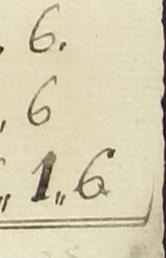 6.
, 6
„ 1„ 6